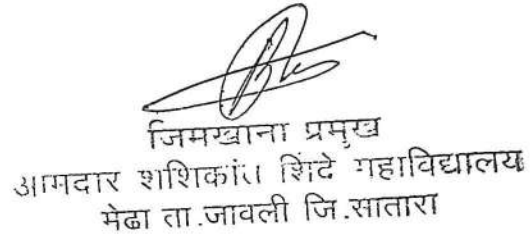 जिमखाना प्रमुख
आमदार शशिकांत शिंदे महाविद्यालय
मेढा ता.जावली जि.सातारा